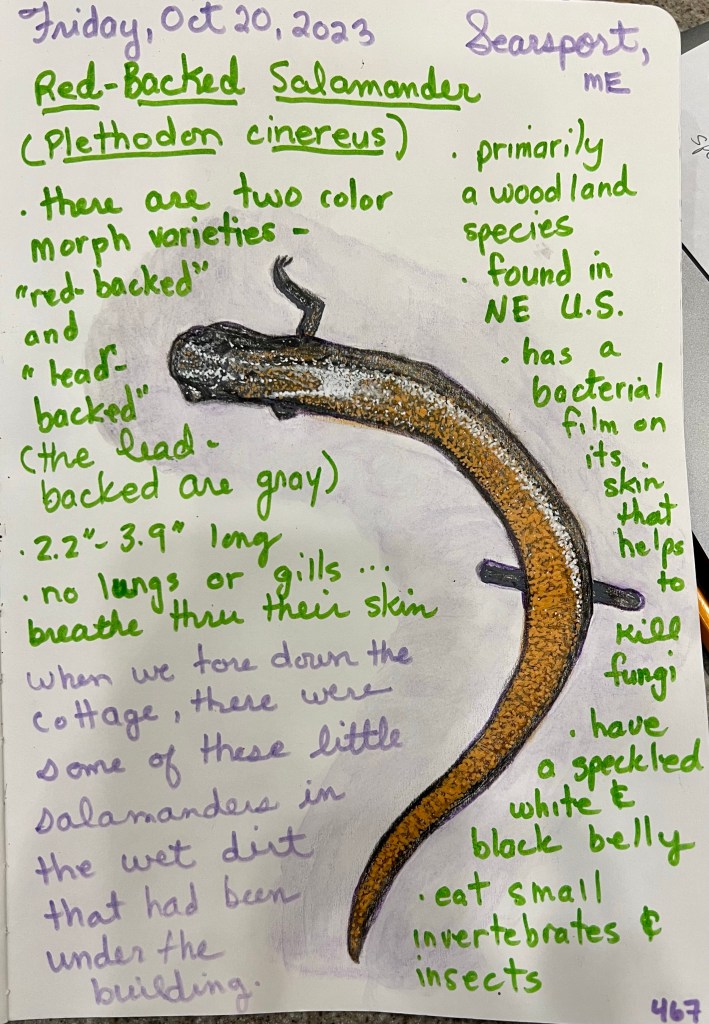 Friday, Oct 20, 2023
Searsport,
ME
Red-Backed Salamander
(Plethodon cinereus)
. there are two color
morph varieties -
"red-backed"
and
"lead-
backed"
(the lead-
backed are gray)
. 2.2"- 3.9" long
. no lungs or gills ...
breathe thru their skin
when we tore down the
cottage, there were
some of these little
salamanders in
the wet dirt
that had been
under the
building.
. primarily
a woodland
species
. found in
NE U.S.
. has a
bacterial
film on
its
skin
that
helps
to
kill
fungi
. have
a speckled
white &
black belly
. eat small
invertebrates &
insects
467